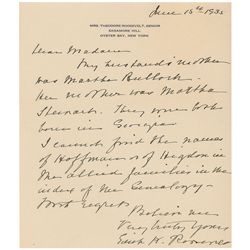 June 15th 1935
MRS. THEODORE ROOSEVELT, SENIOR
SAGAMORE HILL
OYSTER BAY, NEW YORK
Dear Madam
My husband's mother
was Martha Bulloch.
Her mother was Martha
Stewart. They were both
born in Georgia
I cannot find the names
of Hoffman or Hegdon in
the allied families in the
index of the Genealogy.
With regret
Believe me
Very truly yours
Edith K. Roosevelt